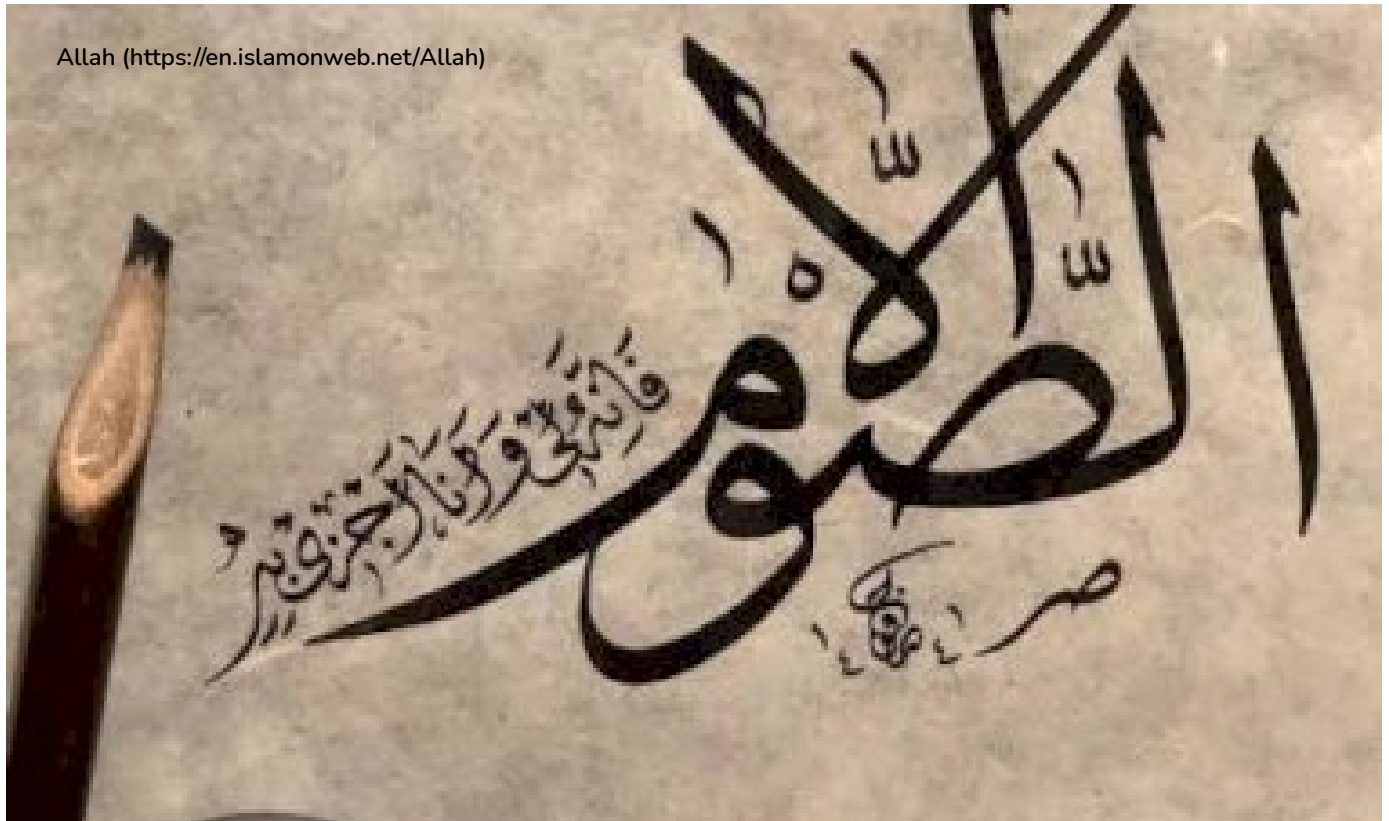 Allah (https://en.islamonweb.net/Allah)
إلَّا الصَّوْمَ
فَإِنَّهُ لِي وَأَنَا أَجْزِي بِهِ